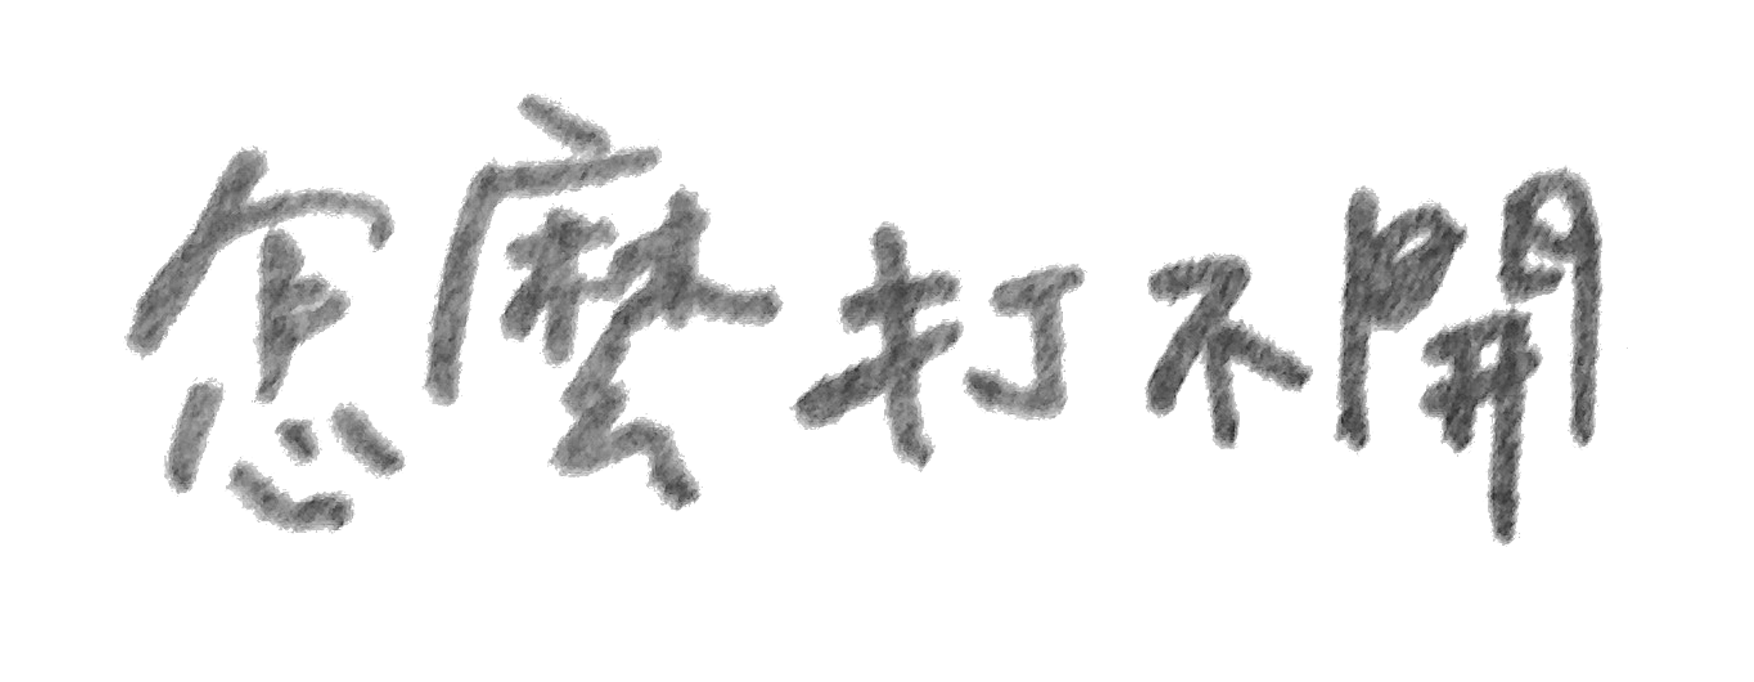 怎麼打不開